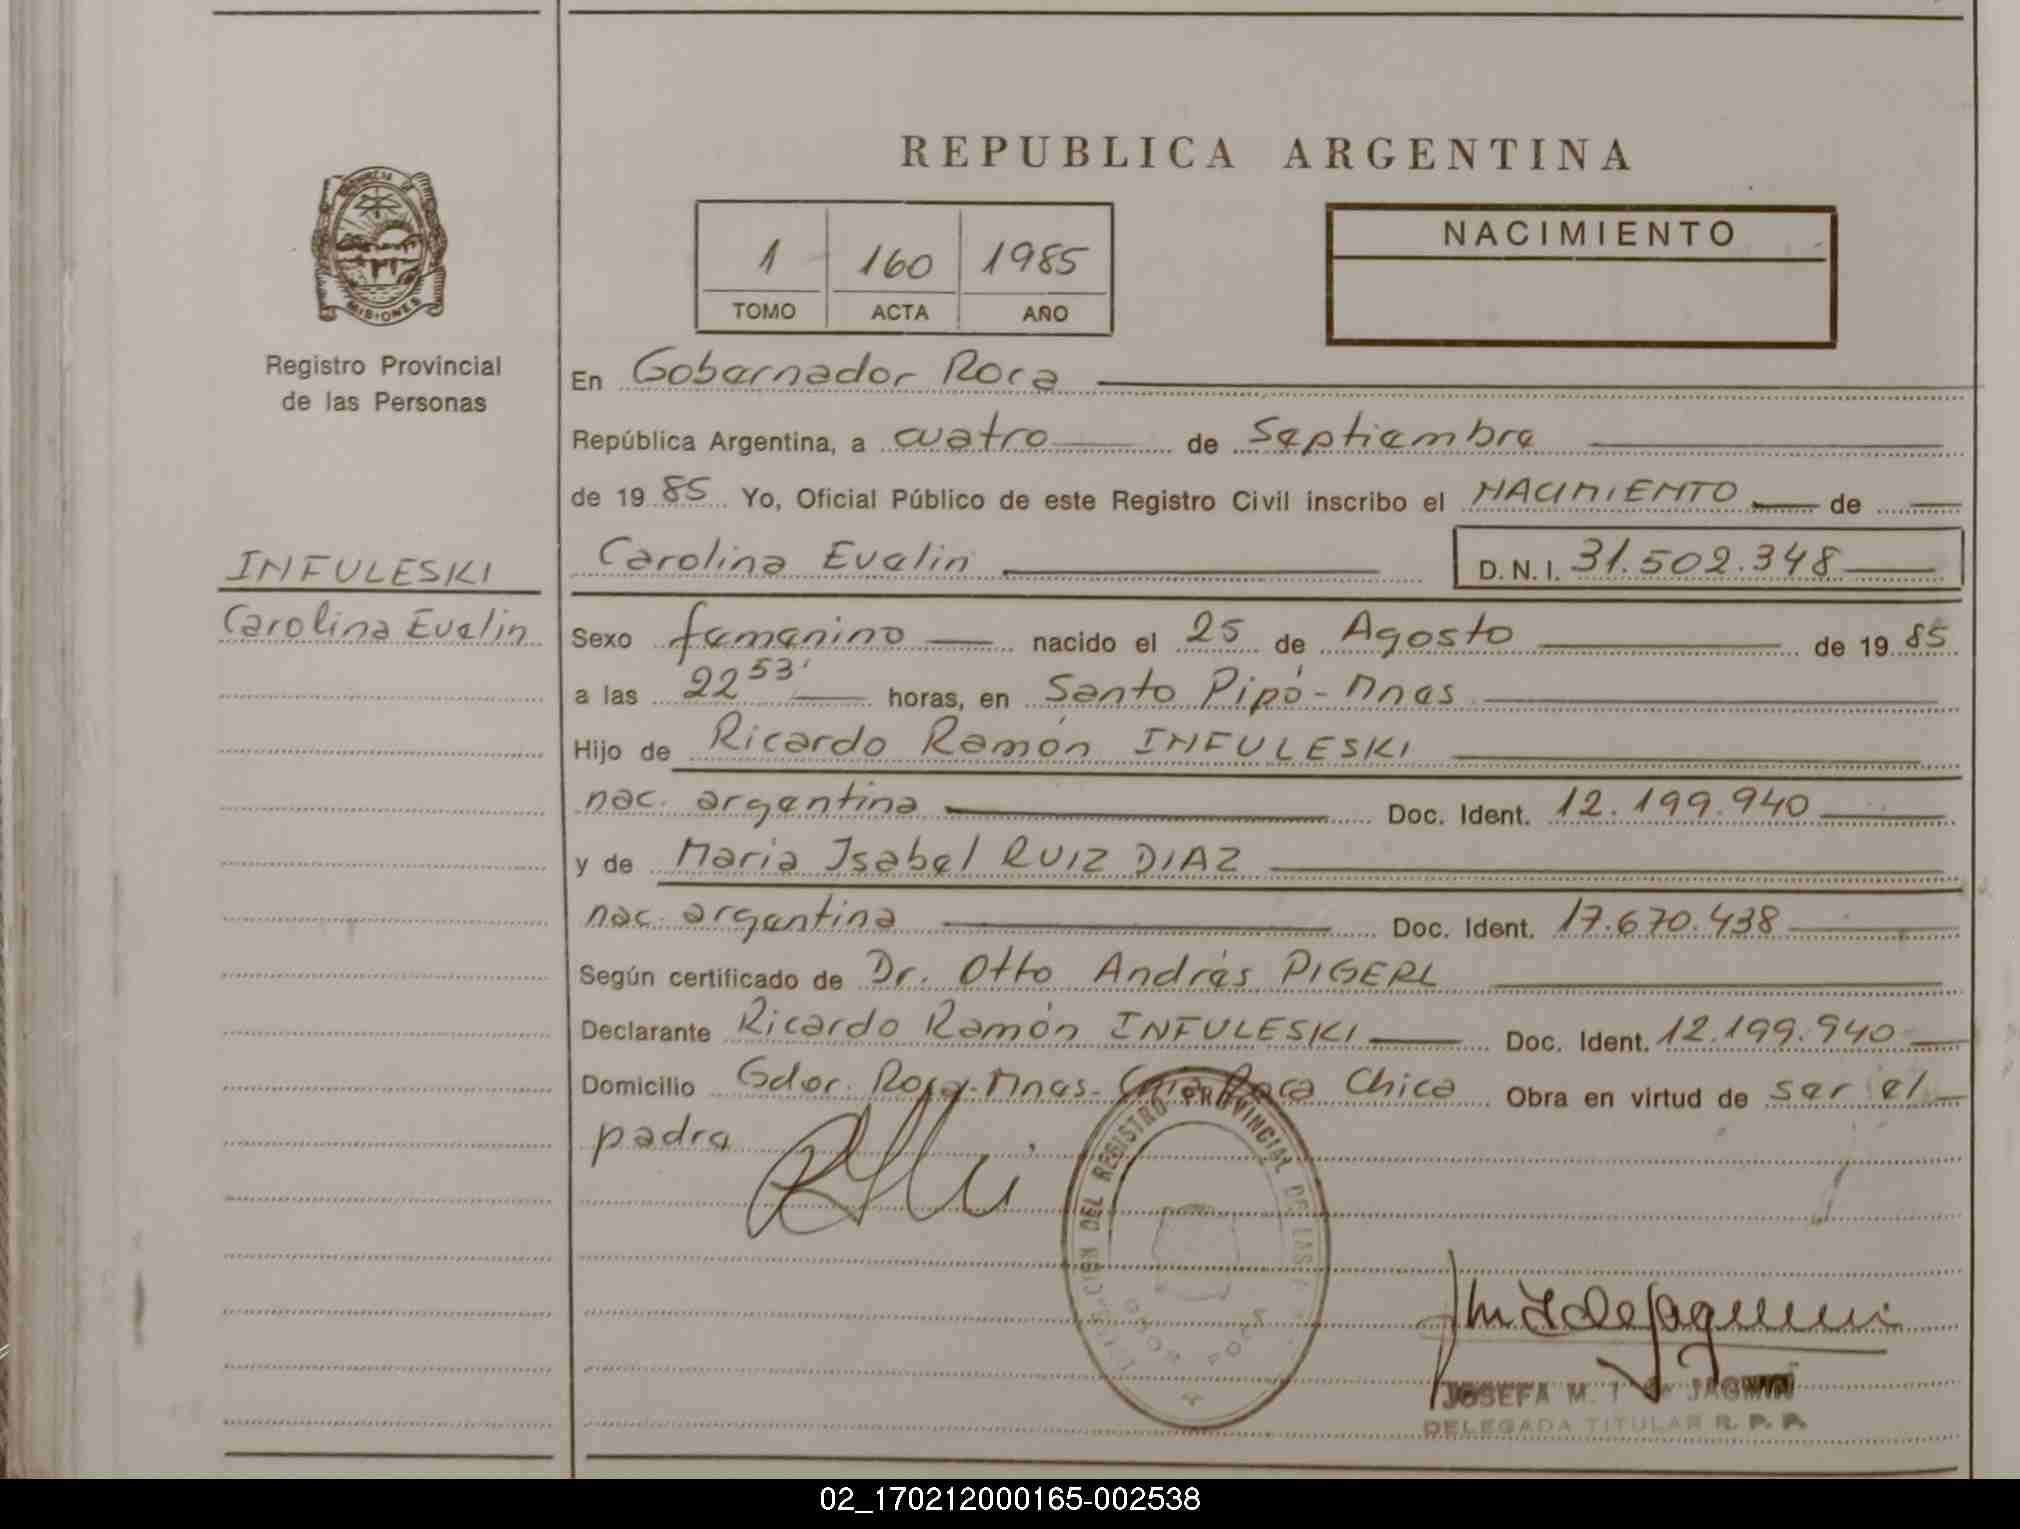 REPUBLICA ARGENTINA
PROVINCIA DE
MISIONES
Registro Provincial
de las Personas
1 160 1985
TOMO ACTA AÑO
NACIMIENTO
En Gobernador Roca
República Argentina, a cuatro de Septiembre
de 1985 Yo, Oficial Público de este Registro Civil inscribo el NACIMIENTO de
INFULESKI
Carolina Evelin
Carolina Evelin D. N. I. 31.502.348
Sexo femenino nacido el 25 de Agosto de 1985
a las 22 53' horas, en Santo Pipó - Mnes
Hijo de Ricardo Ramón INFULESKI
nac. argentina Doc. Ident. 12.199.940
y de Maria Isabel RUIZ DIAZ
nac. argentina Doc. Ident. 17.670.438
Según certificado de Dr. Otto Andrés PIGERL
Declarante Ricardo Ramón INFULESKI Doc. Ident. 12.199.940
Domicilio Gdor. Roca - Mnes - Roca Chica Obra en virtud de ser el
padre
DEL REGISTRO PROVINCIAL DE LAS
GDOR ROCA
JOSEFA M. I. de
DELEGADA TITULAR R. P. P.
02_170212000165-002538